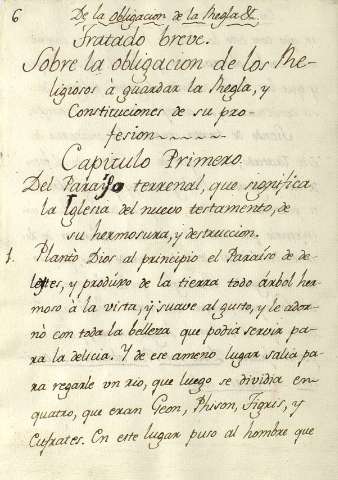 6 De la Obligacion de la Regla &c.
Tratado breve.
Sobre la obligacion de los Re-
ligiosos à guardar la Regla, y
Constituciones de su pro-
fesion
Capitulo Primero.
Del Paraiso terrenal, que significa
la Iglesia del nuevo testamento, de
su hermosura, y destruccion.
1. Planto Dios al principio el Paraiso de de-
leytes, y produxo de la tierra todo árbol her-
moso à la vista, y suave al gusto, y le ador-
nò con toda la belleza que podia servir pa-
ra la delicia. Y de ese ameno lugar salia pa-
ra regarle vn rio, que luego se dividia en
quatro, que eran Geon, Phison, Tigris, y
Eufrates. En este lugar puso al hombre que